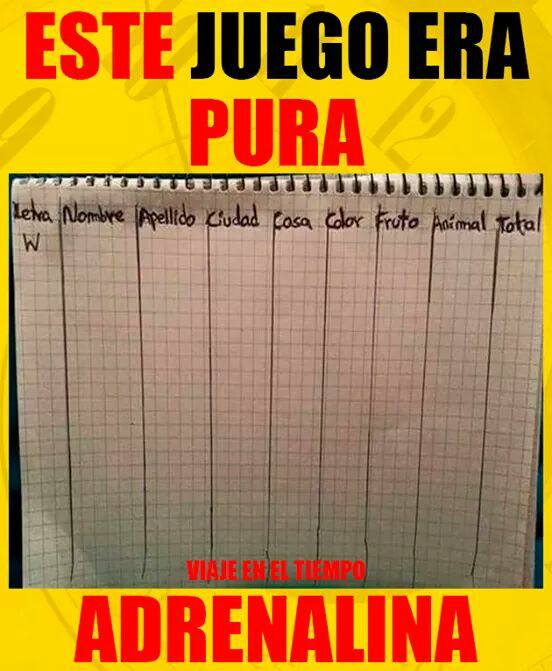 ESTE JUEGO ERA
PURA
Letra Nombre Apellido Ciudad Cosa Color Fruto Animal Total
W
VIAJE EN EL TIEMPO
ADRENALINA